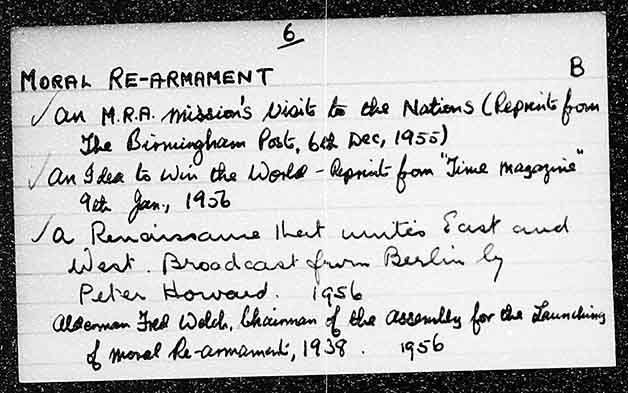 6
MORAL RE-ARMAMENT B
✓ An M.R.A. Mission's Visit to the Nations (Reprints from
The Birmingham Post, 6th Dec, 1955)
✓ An Idea to Win the World - Reprint from "Time Magazine"
9th Jan., 1956
✓ A Renaissance that unites East and
West. Broadcast from Berlin by
Peter Howard. 1956
Alderman Fred Welch, Chairman of the Assembly for the Launching
of Moral Re-armament, 1938. 1956